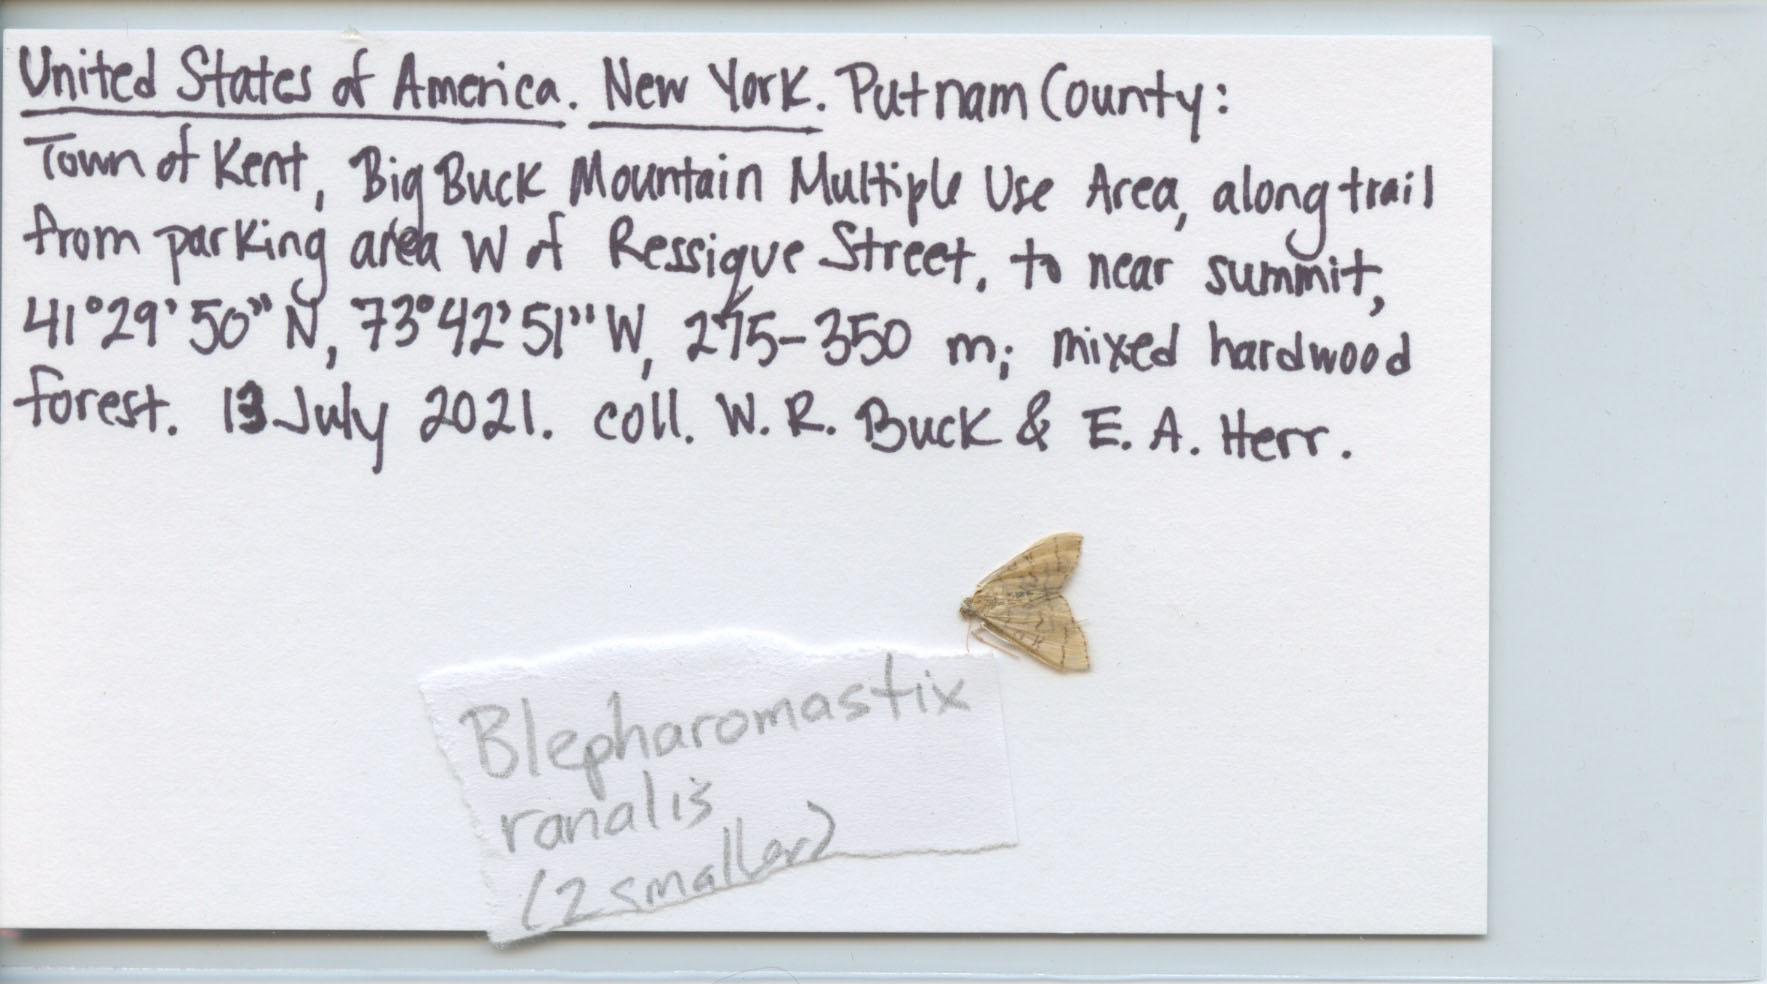 United States of America. New York. Putnam County:
Town of Kent, Big Buck Mountain Multiple Use Area, along trail
from parking area W of Ressique Street, to near summit,
41°29'50"N, 73°42'51"W, 275-350 m; mixed hardwood
forest. 13 July 2021. coll. W. R. Buck & E. A. Herr.
Blepharomastix
ranalis
(2 smaller)